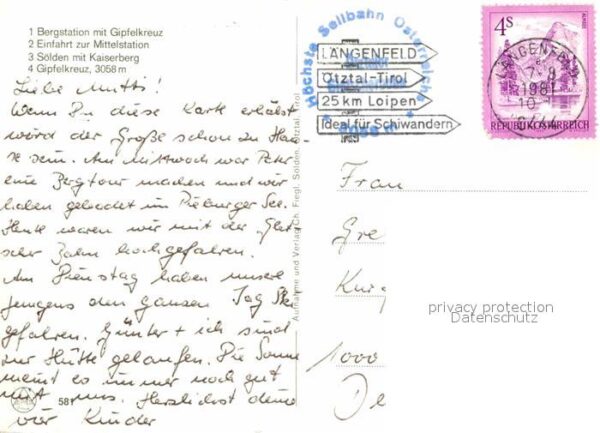 1 Bergstation mit Gipfelkreuz
2 Einfahrt zur Mittelstation
3 Sölden mit Kaiserberg
4 Gipfelkreuz, 3058 m
Liebe Mutti!
Wenn Du diese Karte erhälst
wird der Große schon zu Hau
se sein. Am Mittwoch war Peter
eine Bergtour machen und wir
haben gebadet im Piburger See.
Heute waren wir mit der „Glet
scher Bahn hochgefahren.
Am Dienstag haben unsere
Jungens den ganzen Tag Ski
gefahren. Günter + ich sind
zur Hütte gelaufen. Die Sonne
meint es immer noch gut
mit uns. Herzlichst deine
vier Kinder
581
Aufnahme und Verlag Ch. Fregl. Sölden, Ötztal, Tirol
Höchste Seilbahn Österreichs
3058 m
LÄNGENFELD
Ötztal-Tirol
25 km Loipen
Ideal für Schiwandern
4S
LÄNGENFELD
1981
10
REPUBLIK ÖSTERREICH
Frau
Gre
Kurg
1000
De
privacy protection
Datenschutz